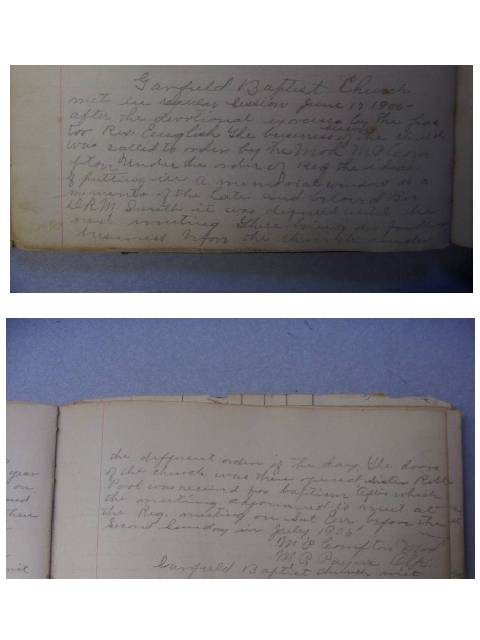 Garfield Baptist Church
met in session June 17 1900
after the devotional exercises by the pas
tor Rev. English the business of the church
was called to order by the Mod M. P. Com
pton Under the order of Reg the
of putting in a memorial window as a
memento of the late and beloved Bro
R M Smith it was until the
next meeting There being no further
business upon the church under
the different orders of the day. The doors
of the church was then opened Sister
Pool was received for baptism after which
the meeting adjourned to meet at
the Reg. meeting on Sat Eve before the
Second Sunday in July 1900
M P Compton Mod
M. P. Payne Clk.
Garfield Baptist church met
year
on
their